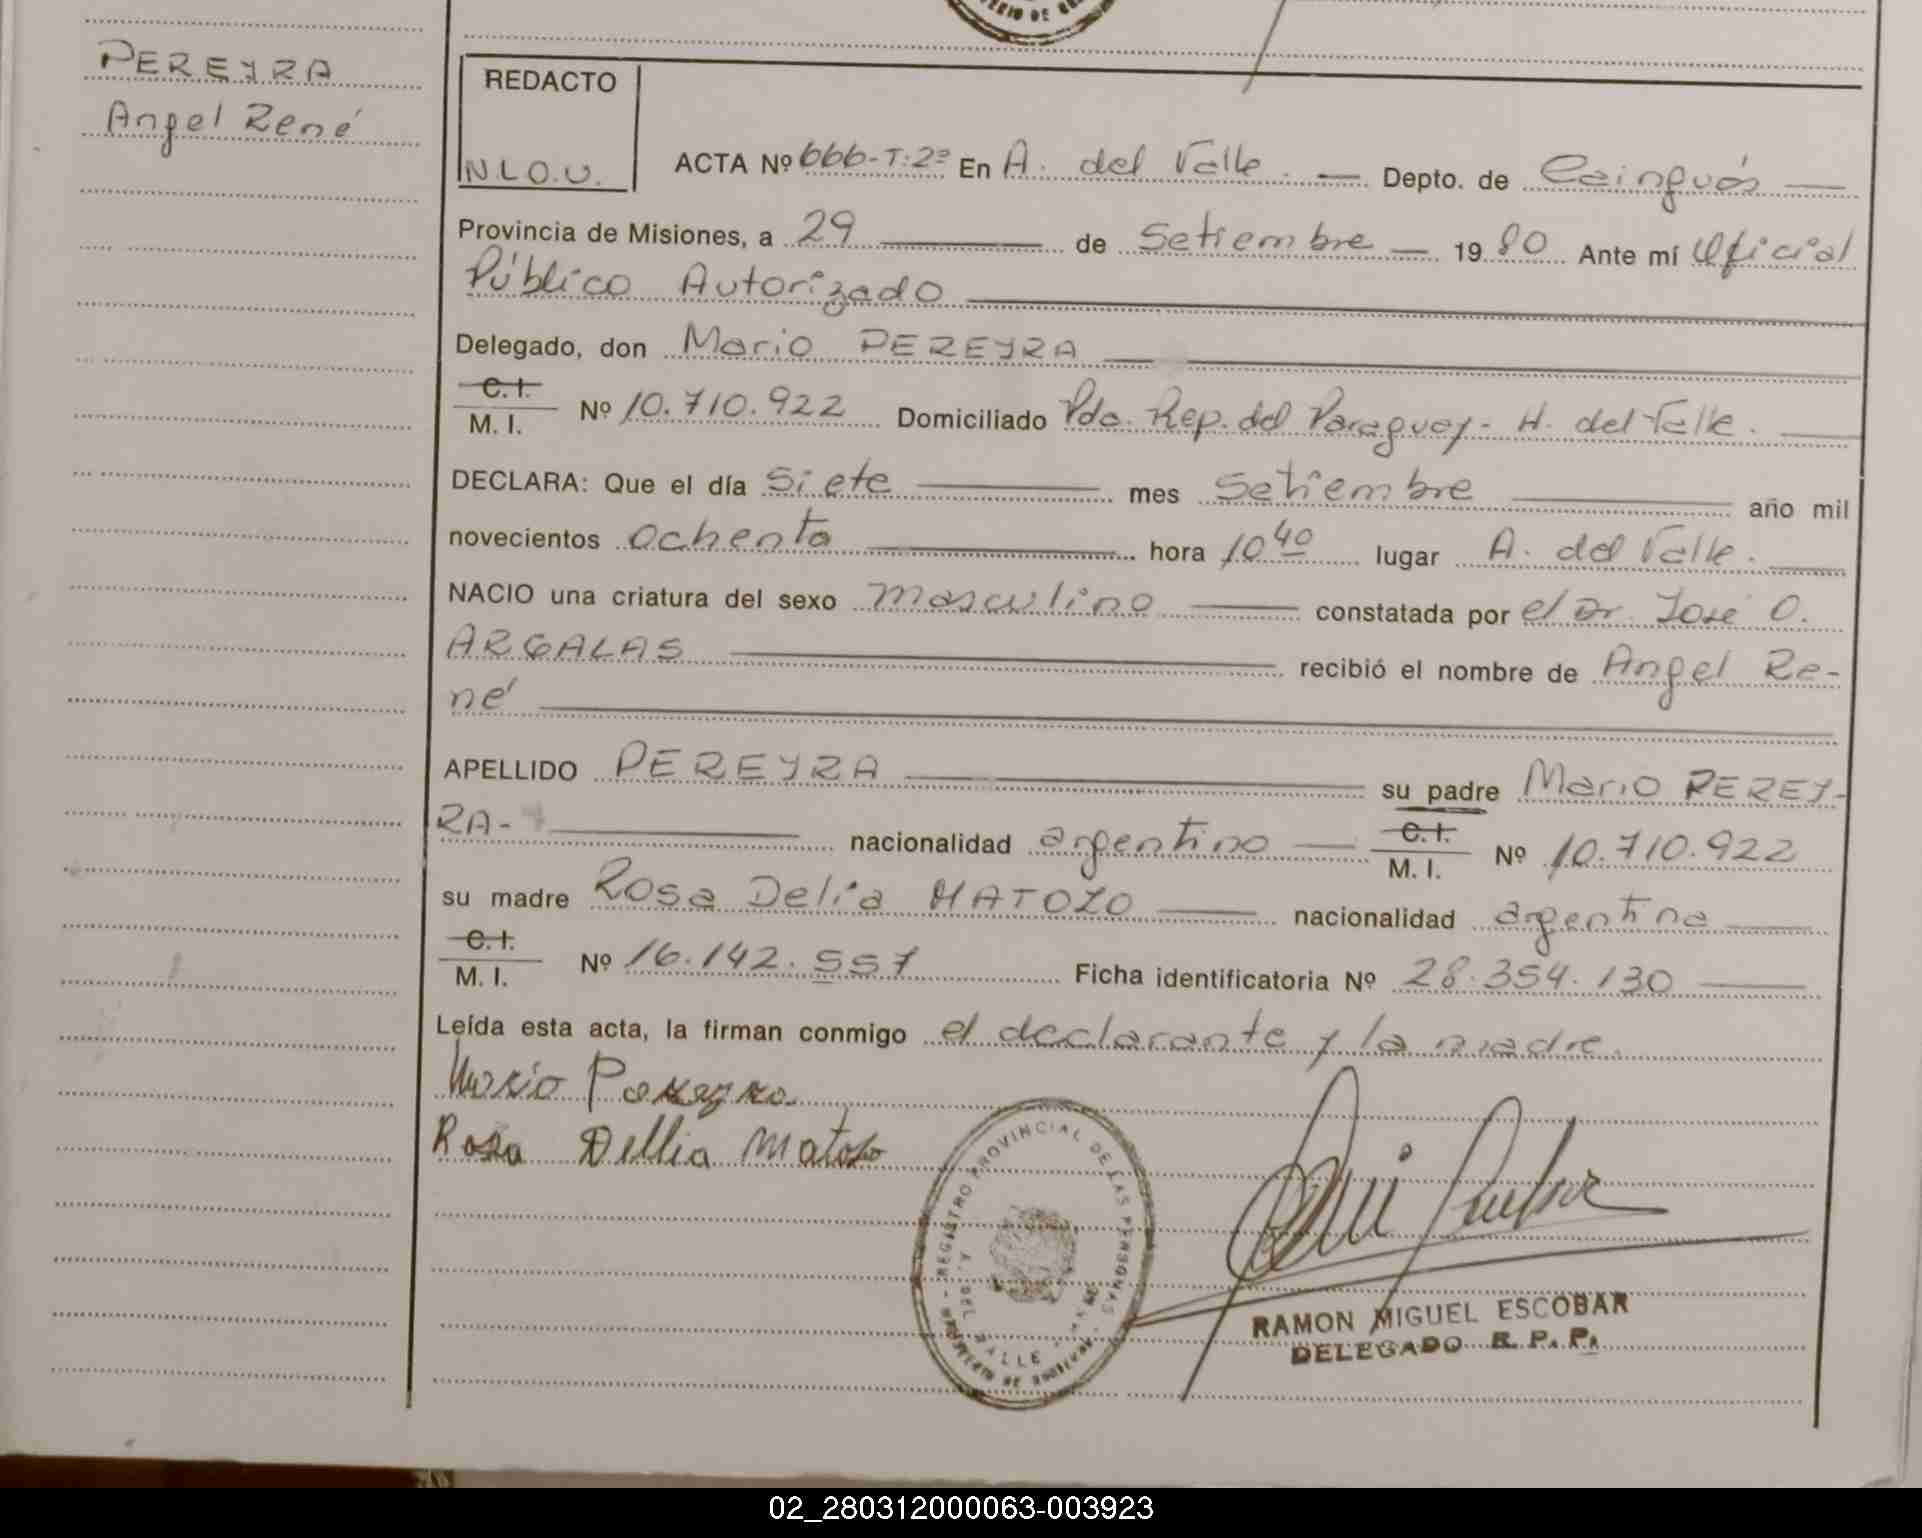 PEREYRA
Angel René
REDACTO
N.L.O.U.
ACTA Nº 666-T:2º En A. del Valle. — Depto. de Caingúas —
Provincia de Misiones, a 29 — de Setiembre — 1980 Ante mí Oficial
Público Autorizado
Delegado, don Mario PEREYRA
C.I.
M. I. Nº 10.710.922 Domiciliado Pdo. Rep. del Paraguay - A. del Valle.
DECLARA: Que el día Siete mes Setiembre año mil
novecientos Ochenta hora 10 40 lugar A. del Valle.
NACIO una criatura del sexo masculino constatada por el Dr. José O.
ARGALAS recibió el nombre de Angel Re-
né
APELLIDO PEREYRA su padre Mario PEREY-
RA- nacionalidad argentino — C.I.
M. I. Nº 10.710.922
su madre Rosa Delia MATOZO nacionalidad argentina
C.I.
M. I. Nº 16.142.557 Ficha identificatoria Nº 28.354.130
Leída esta acta, la firman conmigo el declarante y la madre.
Mario Pereyra
Rosa Dellia Matoso
REGISTRO PROVINCIAL DE LAS PERSONAS
A. DEL VALLE
RAMON MIGUEL ESCOBAR
DELEGADO R. P. P.
02_280312000063-003923